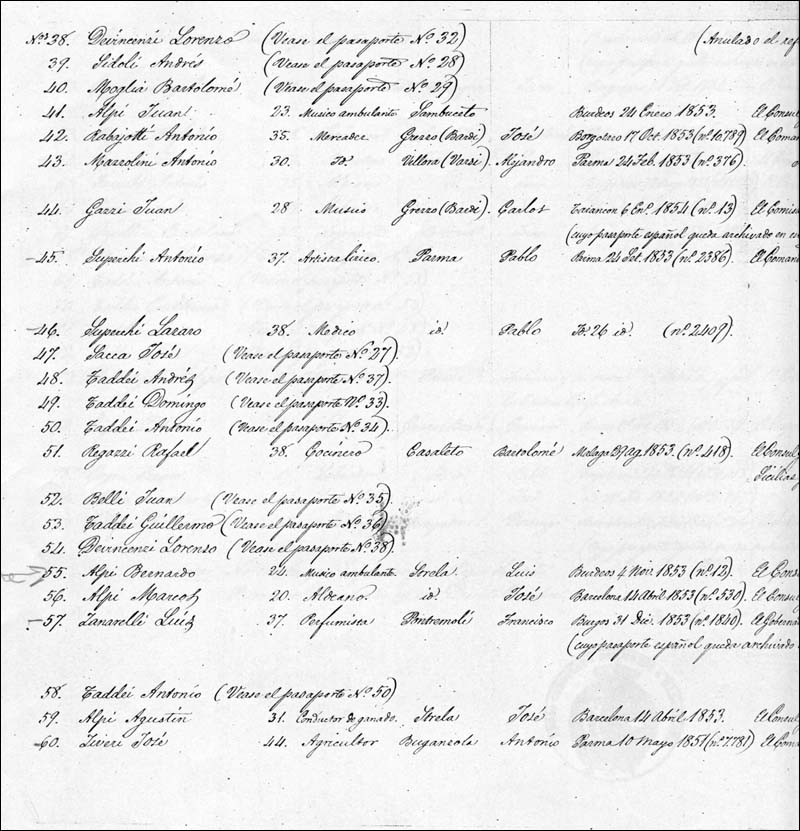 Nº 38. Devincenzi Lorenzo (Vease el pasaporte Nº 32) (Anulado el ref
39. Sidoli Andrés (Vease el pasaporte Nº 28)
40. Moglia Bartolomé (Vease el pasaporte Nº 29)
41. Alpi Juan 23. Musico ambulante Sambuceto Burdeos 24 Enero 1853. El Consul
42. Rabajotti Antonio 35. Mercader Grezzo (Bardi) José Borgotaro 17 Oct. 1853 (nº 10.789) El Coman
43. Mazzolini Antonio 30. Id. (Varsi) Alejandro Parma 24 Feb. 1853 (nº 376).
44. Gazzi Juan 28 Musico Grezzo (Bardi). Carlos 6 Enº 1854 (nº 13) El Comisa
(cuyo pasaporte español queda archivado en es
45. Superchi Antonio 37. Artista lírico Parma Pablo 24 Set. 1853 (nº 2386). El Coman
46. Superchi Lazaro 38. Medico id. Pablo Id. 26 id. (nº 2409).
47. Sacca José (Vease el pasaporte Nº 27)
48. Taddei Andrés (Vease el pasaporte Nº 37)
49. Taddei Domingo (Vease el pasaporte Nº 33)
50. Taddei Antonio (Vease el pasaporte Nº 34)
51. Regazzi Rafael 38. Cocinero Casaleto Bartolomé Malaga Ag. 1853. (nº 418). El Consul
Sicilias
52. Belli Juan (Vease el pasaporte Nº 35)
53. Taddei Guillermo (Vease el pasaporte Nº 36)
54. Devincenzi Lorenzo (Vease el pasaporte Nº 38).
55. Alpi Bernardo 24. Musico ambulante Strela. Luis Burdeos 4 Nov. 1853 (nº 12). El Consu
56. Alpi Marcos 20. Aldeano. id. José Barcelona 14 Abril 1853 (nº 530). El Consul
57. Zanarelli Luis 37. Perfumista Pontremoli Francisco Burgos 31 Dic. 1853 (nº 1840). El Goberna
(cuyo pasaporte español queda archivado
58. Taddei Antonio (Vease el pasaporte Nº 50)
59. Alpi Agustin 31. Conductor de ganado. Strela José Barcelona 14 Abril 1853. El Consul
60. Ziveri José 44. Agricultor Buganzola Antonio Parma 10 Mayo 1851 (nº 7.781) El Coma